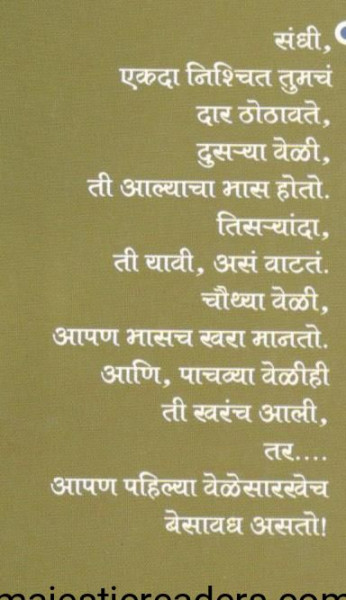 संधी,
एकदा निश्चित तुमचं
दार ठोठावते,
दुसऱ्या वेळी,
ती आल्याचा भास होतो.
तिसऱ्यांदा,
ती यावी, असं वाटतं.
चौथ्या वेळी,
आपण भासच खरा मानतो.
आणि, पाचव्या वेळीही
ती खरंच आली,
तर....
आपण पहिल्या वेळेसारखेच
बेसावध असतो!
majesticreaders.com